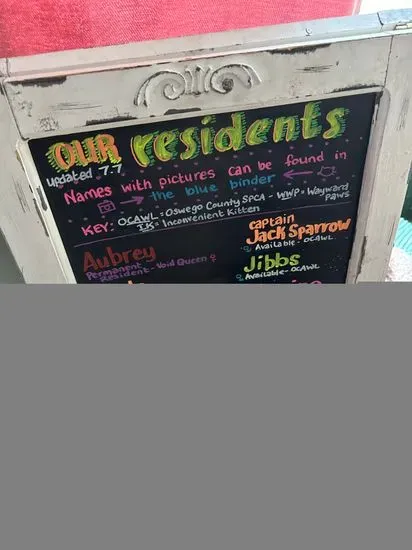 OUR residents
updated 7.7
Names with pictures can be found in
the blue binder
KEY: OCAWL = Oswego County SPCA - WWP = Wayward Paws
IK = Inconvenient Kitten
Aubrey
Permanent Resident - Void Queen
Captain
Jack Sparrow
Available - OCAWL
Jibbs
Available - OCAWL